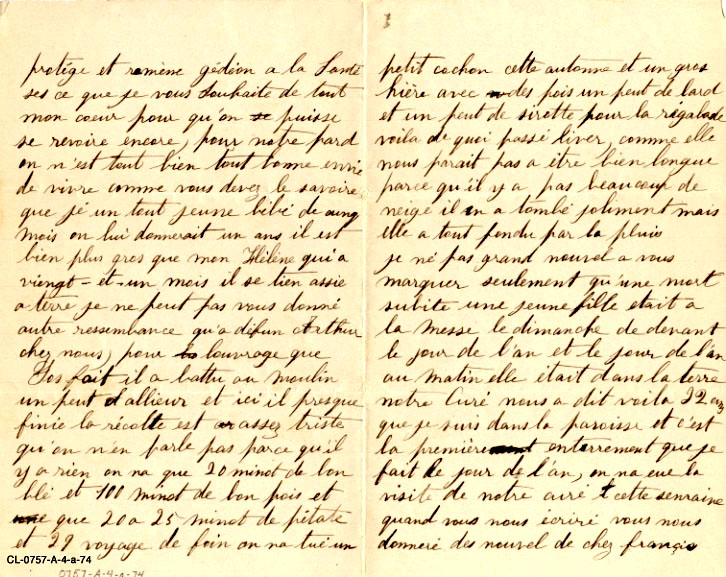 protége et ramène gédéon a la Santé
ses ce que je vous souhaite de tout
mon coeur pour qu'on se puisse
se revoire encore, pour notre pard
on n'est tout bien tout bonne envie
de vivre comme vous devez le savoire
que jé un tout jeune bébé de oung
mois on lui donnerait un ans il est
bien plus gros que mon Hélène qui a
viengt-et-un mois il se tien assie
a terre je ne peut pas vous donné
autre ressembance qu'a défun Arthur
chez nous, pour louvrage que
Jos fait il a battu au moulin
un peut d'allieur et ici il presque
finie la récolte est assez triste
qu'on n'en parle pas parce qu'il
y a rien on na que 20 minot de bon
blé et 100 minot de bon pois et
que 20 a 25 minot de pétate
et 29 voyage de foin on na tué un
3
petit cochon cette automne et un gros
hière avec des pois un peut de lard
et un peut de sirette pour la régalade
voila de quoi passé liver, comme elle
nous parait pas a être bien longue
parce qu'il y a pas beaucoup de
neige il en a tombé joliment mais
elle a tout fondu par la pluie
je né pas grand nouvel a vous
marquer seulement qu'une mort
subite une jeune fille etait a
la messe le dimanche de devant
le jour de l'an et le jour de l'an
au matin elle était dans la terre
notre Curé nous a dit voila 32 ans
que je suis dans la paroisse et c'est
la première enterrement que je
fait le jour de l'an, on na eue la
visite de notre curé cette semaine
quand vous nous écriré vous nous
donneré des nouvel de chez françis
CL-0757-A-4-a-74
0757-A-4-a-74